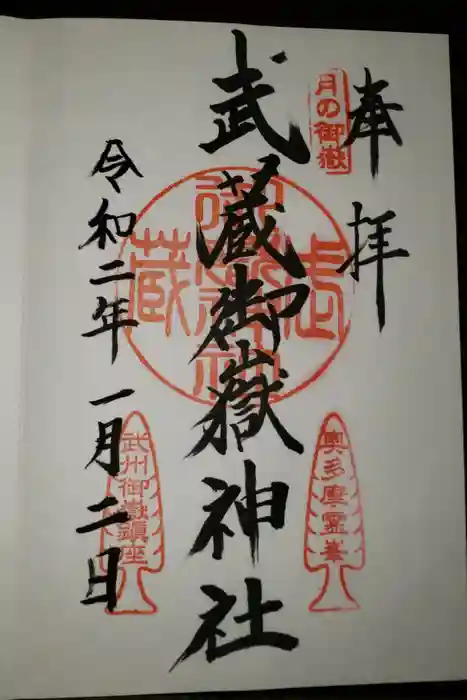 奉拝
月の御嶽
武蔵御嶽神社
奥多摩霊峯
武州御嶽鎮座
令和二年一月二日